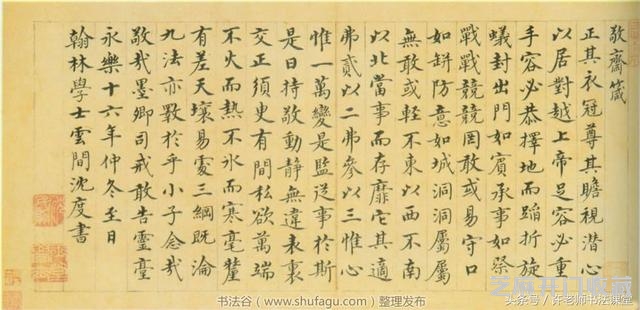 敬齋箴
正其衣冠尊其瞻視潛心
以居對越上帝足容必重
手容必恭擇地而蹈折旋
蟻封出門如賓承事如祭
戰戰兢兢罔敢或易守口
如缾防意如城洞洞屬屬
無敢或輕不東以西不南
以北當事而存靡它其適
弗貳以二弗參以三惟心
惟一萬變是監從事於斯
是曰持敬動靜無違表裏
交正須臾有間私欲萬端
不火而熱不冰而寒毫釐
有差天壤易處三綱既淪
九法亦斁於乎小子念哉
敬哉墨卿司戒敢告靈臺
永樂十六年仲冬至日
翰林學士雲間沈度書
书法谷（www.shufagu.com）整理发布
头条号 / 许老师书法课堂